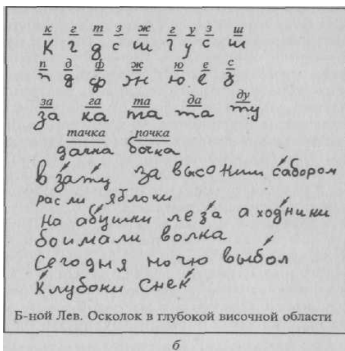 к г т з ж г у з ш
к г д с ш г у с ш
п д ф ж ю е с
п д ф ж ю е з
за га та да ду
за ка та та ту
тачка почка
дачка бочка
в зату за высоним сабором
расли яблони
на абушки леза а ходнини
боимали волка
Сегодня ночю выбол
Клубоки снек
Б-ной Лев. Осколок в глубокой височной области
б